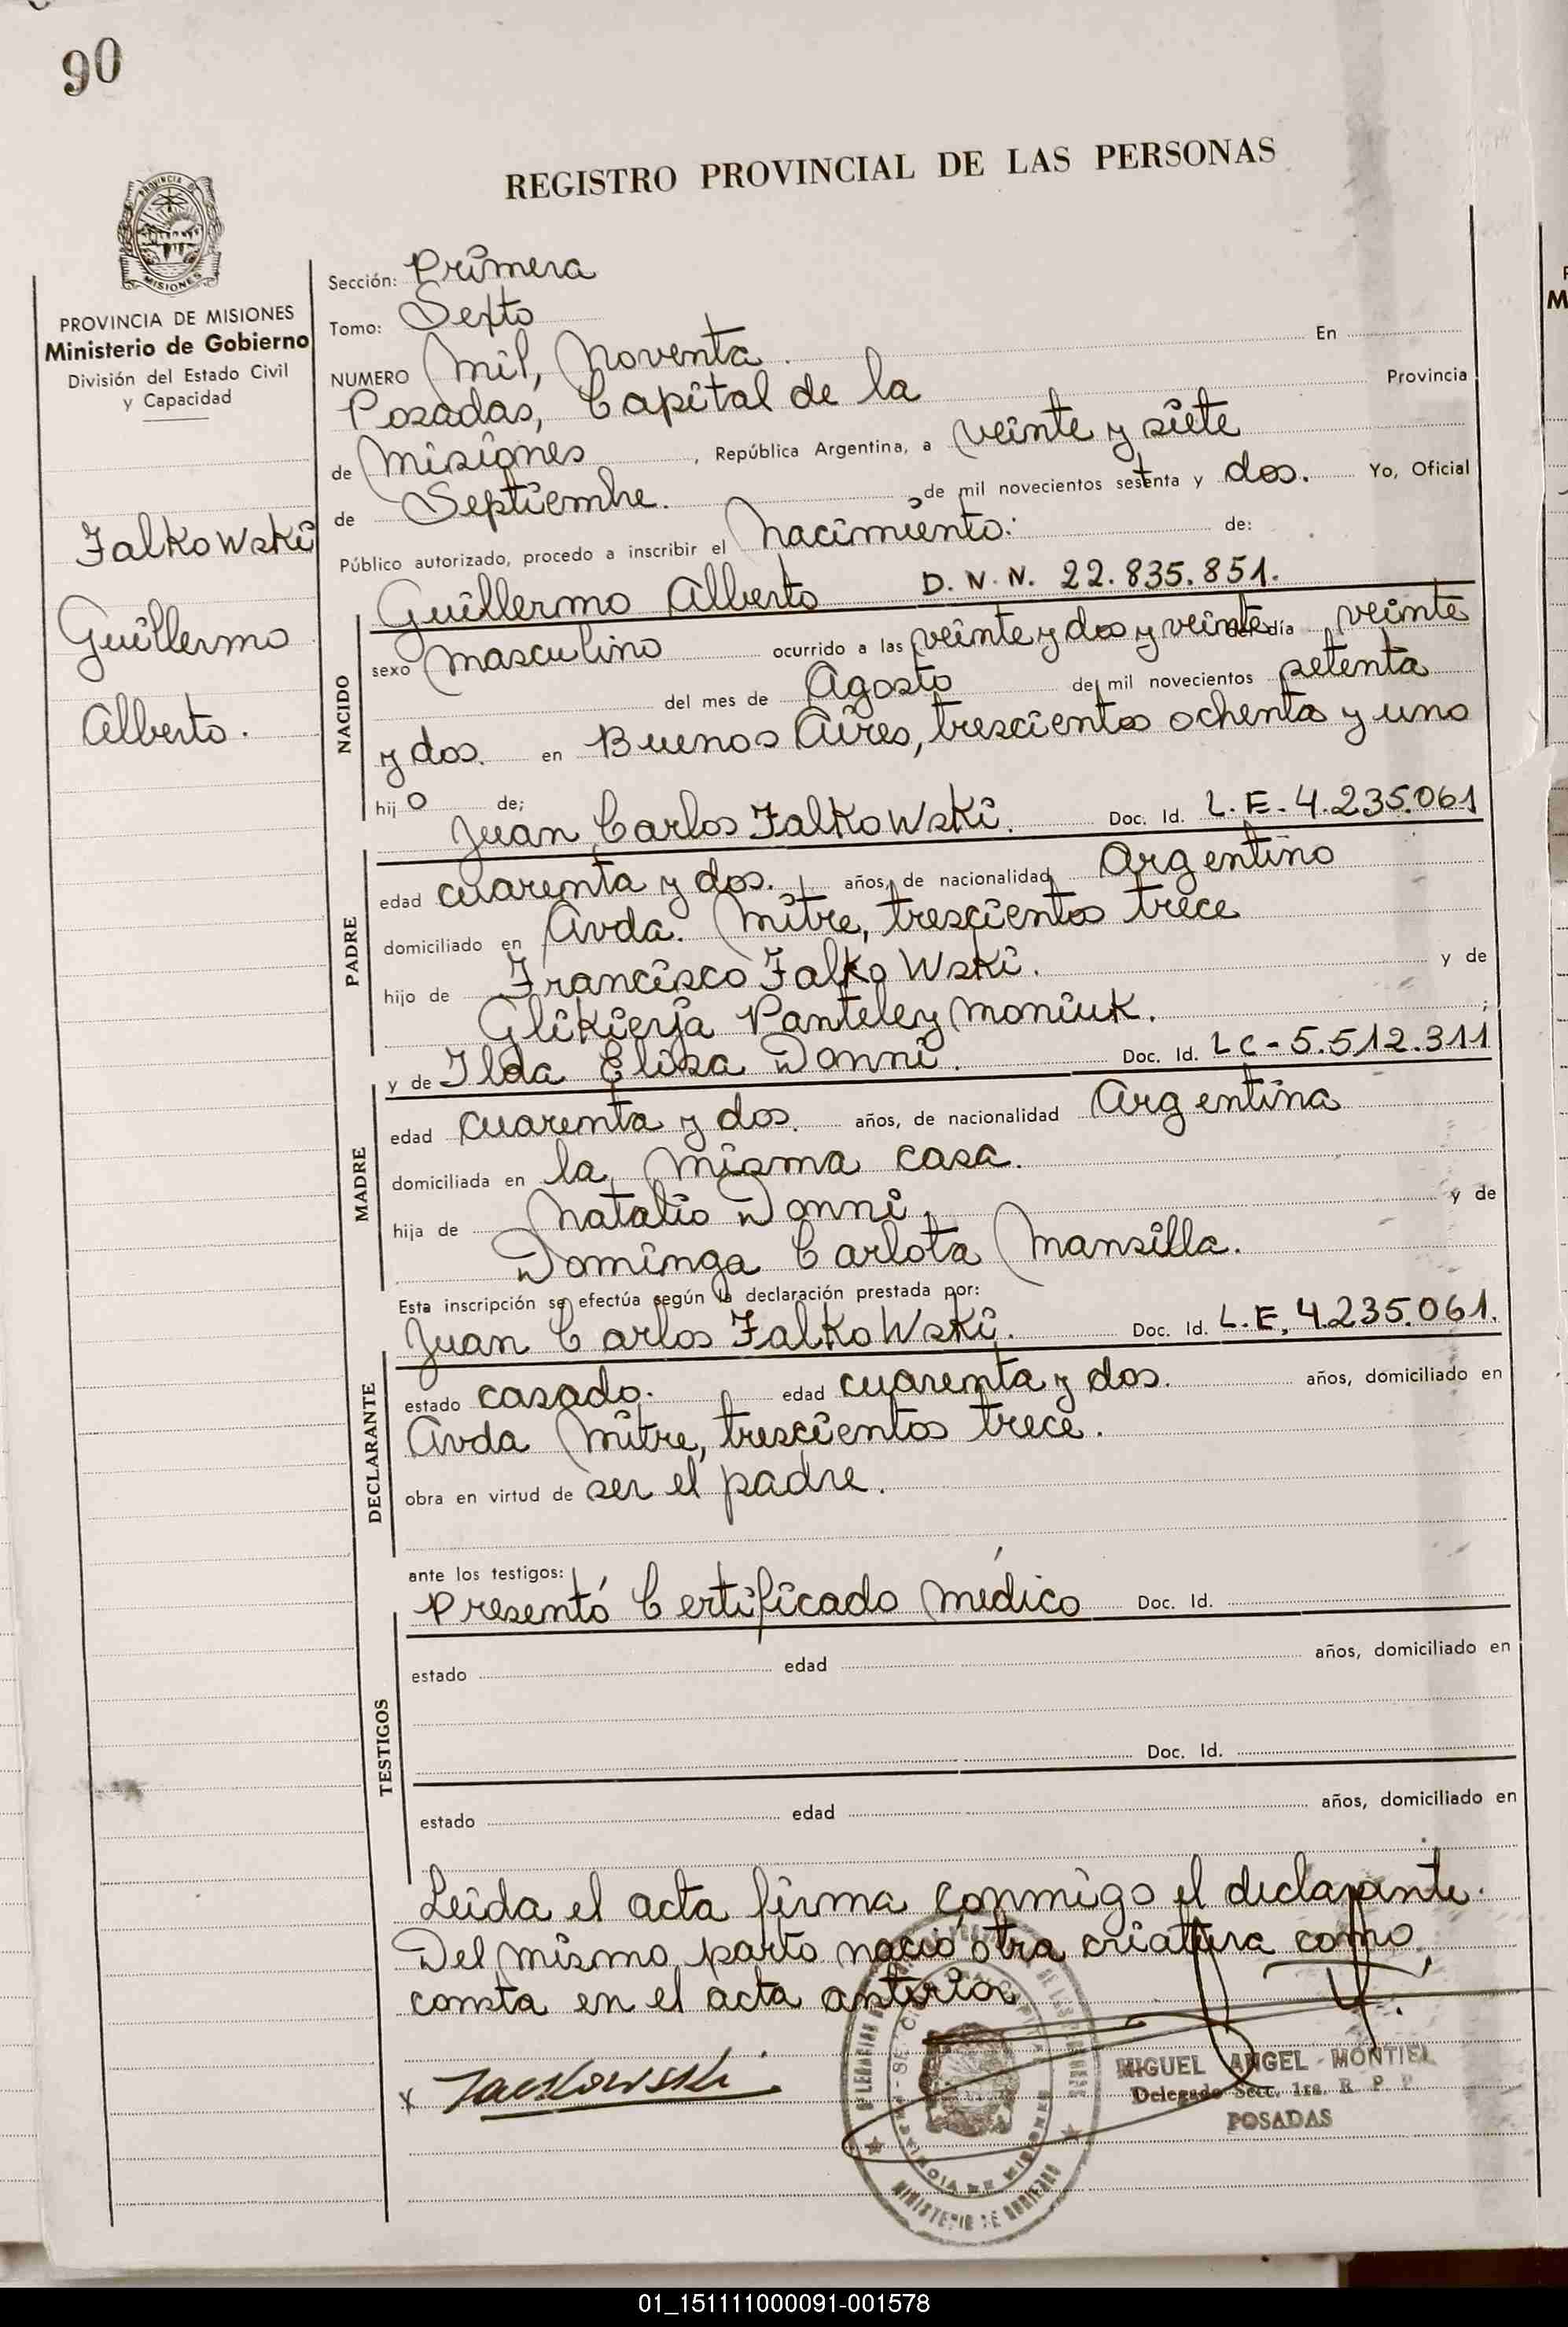 90
REGISTRO PROVINCIAL DE LAS PERSONAS
PROVINCIA DE MISIONES
Ministerio de Gobierno
División del Estado Civil
y Capacidad
Falkowski
Guillermo
Alberto.
Sección: Primera
Tomo: Sexto
NUMERO Mil, Noventa. En
Posadas, Capital de la Provincia
de Misiones, República Argentina, a veinte y siete
de Septiembre. de mil novecientos setenta y dos. Yo, Oficial
Público autorizado, procedo a inscribir el Nacimiento: de:
Guillermo Alberto D.N.N. 22.835.851.
NACIDO
sexo masculino ocurrido a las veinte y dos y veinte del día veinte
del mes de Agosto de mil novecientos setenta
y dos. en Buenos Aires, trescientos ochenta y uno
hijo de;
Juan Carlos Falkowski. Doc. Id. L.E. 4.235.061
PADRE
edad cuarenta y dos. años, de nacionalidad Argentino
domiciliado en Avda. Mitre, trescientos trece
hijo de Francisco Falkowski. y de
Glikierja Panteleymoniuk. ;
y de Ilda Elisa Donni. Doc. Id. LC-5.512.311
MADRE
edad cuarenta y dos. años, de nacionalidad Argentina
domiciliada en la misma casa.
hija de Natalio Donni, y de
Dominga Carlota Mansilla.
Esta inscripción se efectúa según la declaración prestada por:
Juan Carlos Falkowski. Doc. Id. L.E, 4.235.061.
DECLARANTE
estado casado. edad cuarenta y dos. años, domiciliado en
Avda Mitre, trescientos trece.
obra en virtud de ser el padre.
ante los testigos:
Presentó Certificado médico Doc. Id.
TESTIGOS
estado edad años, domiciliado en
Doc. Id.
estado edad años, domiciliado en
Leida el acta firma conmigo el declarante.
Del mismo parto nació otra criatura como
consta en el acta anterior
x Falkowski
MIGUEL ANGEL MONTIEL
Delegado Secc. 1ra. R. P. P.
POSADAS
PROVINCIA DE MISIONES
MINISTERIO DE GOBIERNO
01_151111000091-001578